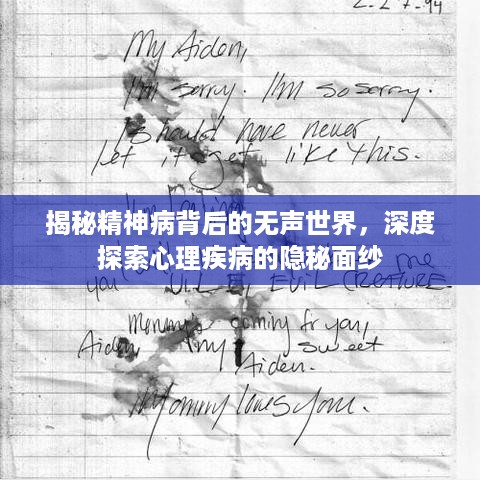 2-27-94
My Aiden,
I'm sorry. I'm so sorry.
I should have never
let it get like this.
揭秘精神病背后的无声世界，深度
探索心理疾病的隐秘面纱
me
you VILE, EVIL CREATURE
Mommy's coming for you,
Aiden, my sweet
Aiden.
Mommy loves you.